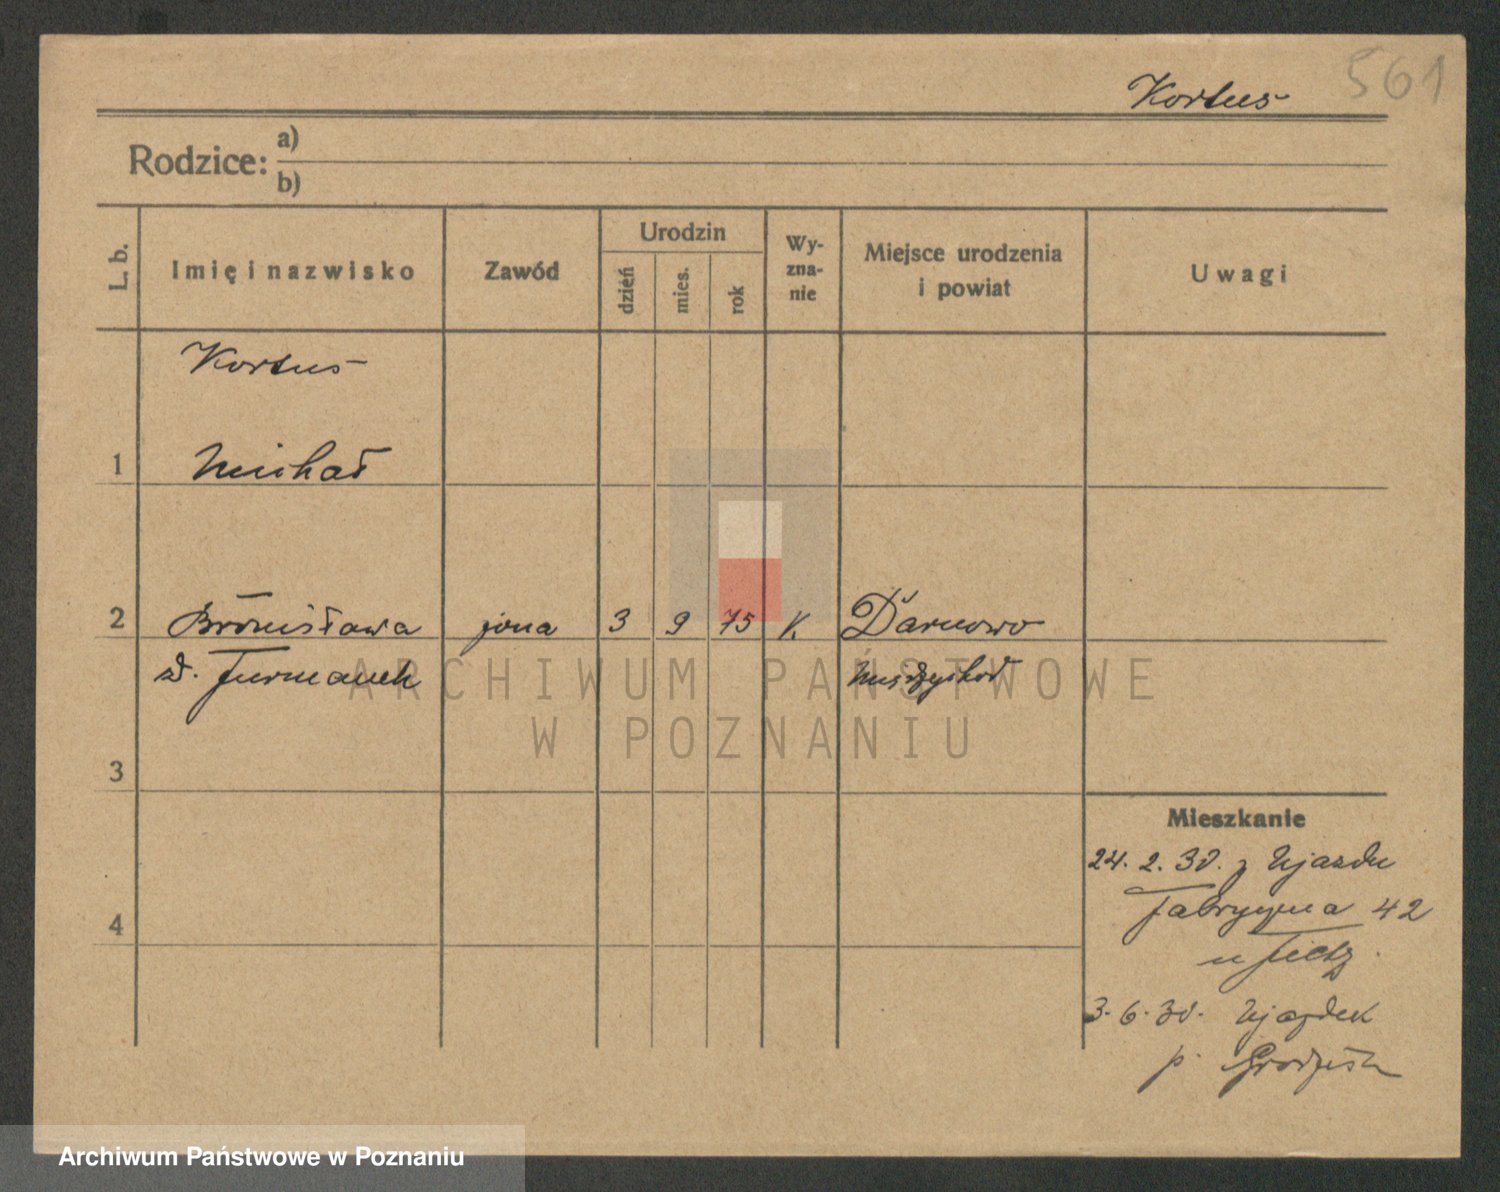 561
Kortus
Rodzice: a)
b)
L. b.
Imię i nazwisko
Zawód
Urodzin
dzień
mies.
rok
Wy-
zna-
nie
Miejsce urodzenia
i powiat
Uwagi
Kortus
1 Michał
2 Bronisława żona 3 9 75 K. Darnowo
z d. Furmanek Międzychod
ARCHIWUM PAŃSTWOWE
W POZNANIU
3
Mieszkanie
24. 2. 30. z Ujazdu
Fabryczna 42
4
u
3. 6. 30. Ujazdek
p. Grodzisk
Archiwum Państwowe w Poznaniu